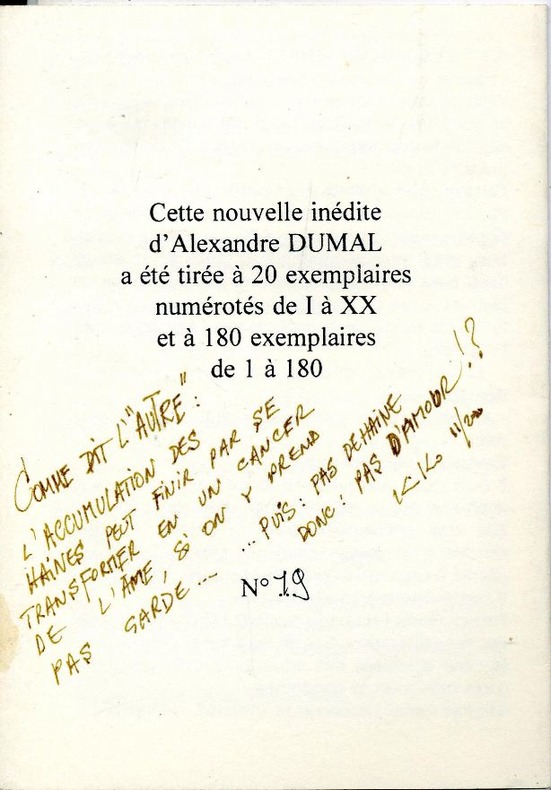 Cette nouvelle inédite
d'Alexandre DUMAL
a été tirée à 20 exemplaires
numérotés de I à XX
et à 180 exemplaires
de 1 à 180
COMME DIT L'"AUTRE" :
L'ACCUMULATION DES
HAINES PEUT FINIR PAR SE
TRANSFORMER EN UN CANCER
DE L'ÂME, SI ON Y PREND
PAS GARDE.... ... PUIS : PAS DE HAINE
DONC : PAS D'AMOUR !?
KiKo 11/200
N° 79